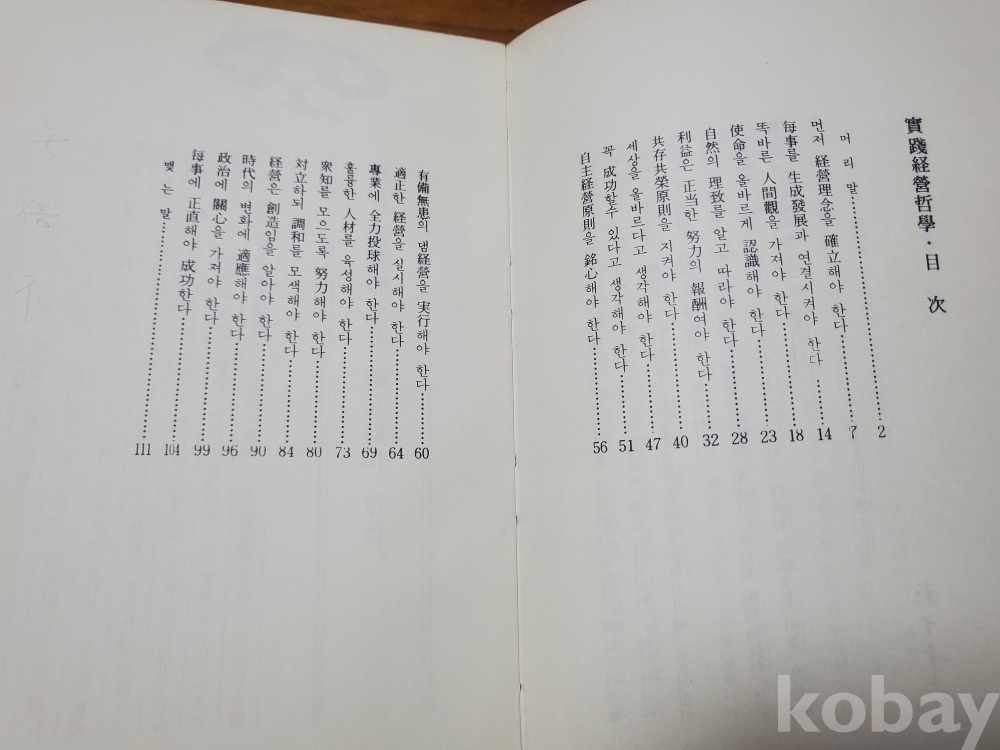 實踐経營哲學・目 次
머 리 말 …… 2
먼저 経營理念을 確立해야 한다 …… 7
每事를 生成發展과 연결시켜야 한다 …… 14
똑바른 人間觀을 가져야 한다 …… 18
使命을 올바르게 認識해야 한다 …… 23
自然의 理致를 알고 따라야 한다 …… 28
利益은 正当한 努力의 報酬여야 한다 …… 32
共存共榮原則을 지켜야 한다 …… 40
세상을 올바르다고 생각해야 한다 …… 47
꼭 成功할수 있다고 생각해야 한다 …… 51
自主経營原則을 銘心해야 한다 …… 56
有備無患의 댐経營을 実行해야 한다 …… 60
適正한 経營을 실시해야 한다 …… 64
專業에 全力投球해야 한다 …… 69
훌륭한 人材를 육성해야 한다 …… 73
衆知를 모으도록 努力해야 한다 …… 80
対立하되 調和를 모색해야 한다 …… 84
経營은 創造임을 알아야 한다 …… 90
時代의 변화에 適應해야 한다 …… 96
政治에 關心을 가져야 한다 …… 99
每事에 正直해야 成功한다 …… 104
맺 는 말 …… 111
kobay